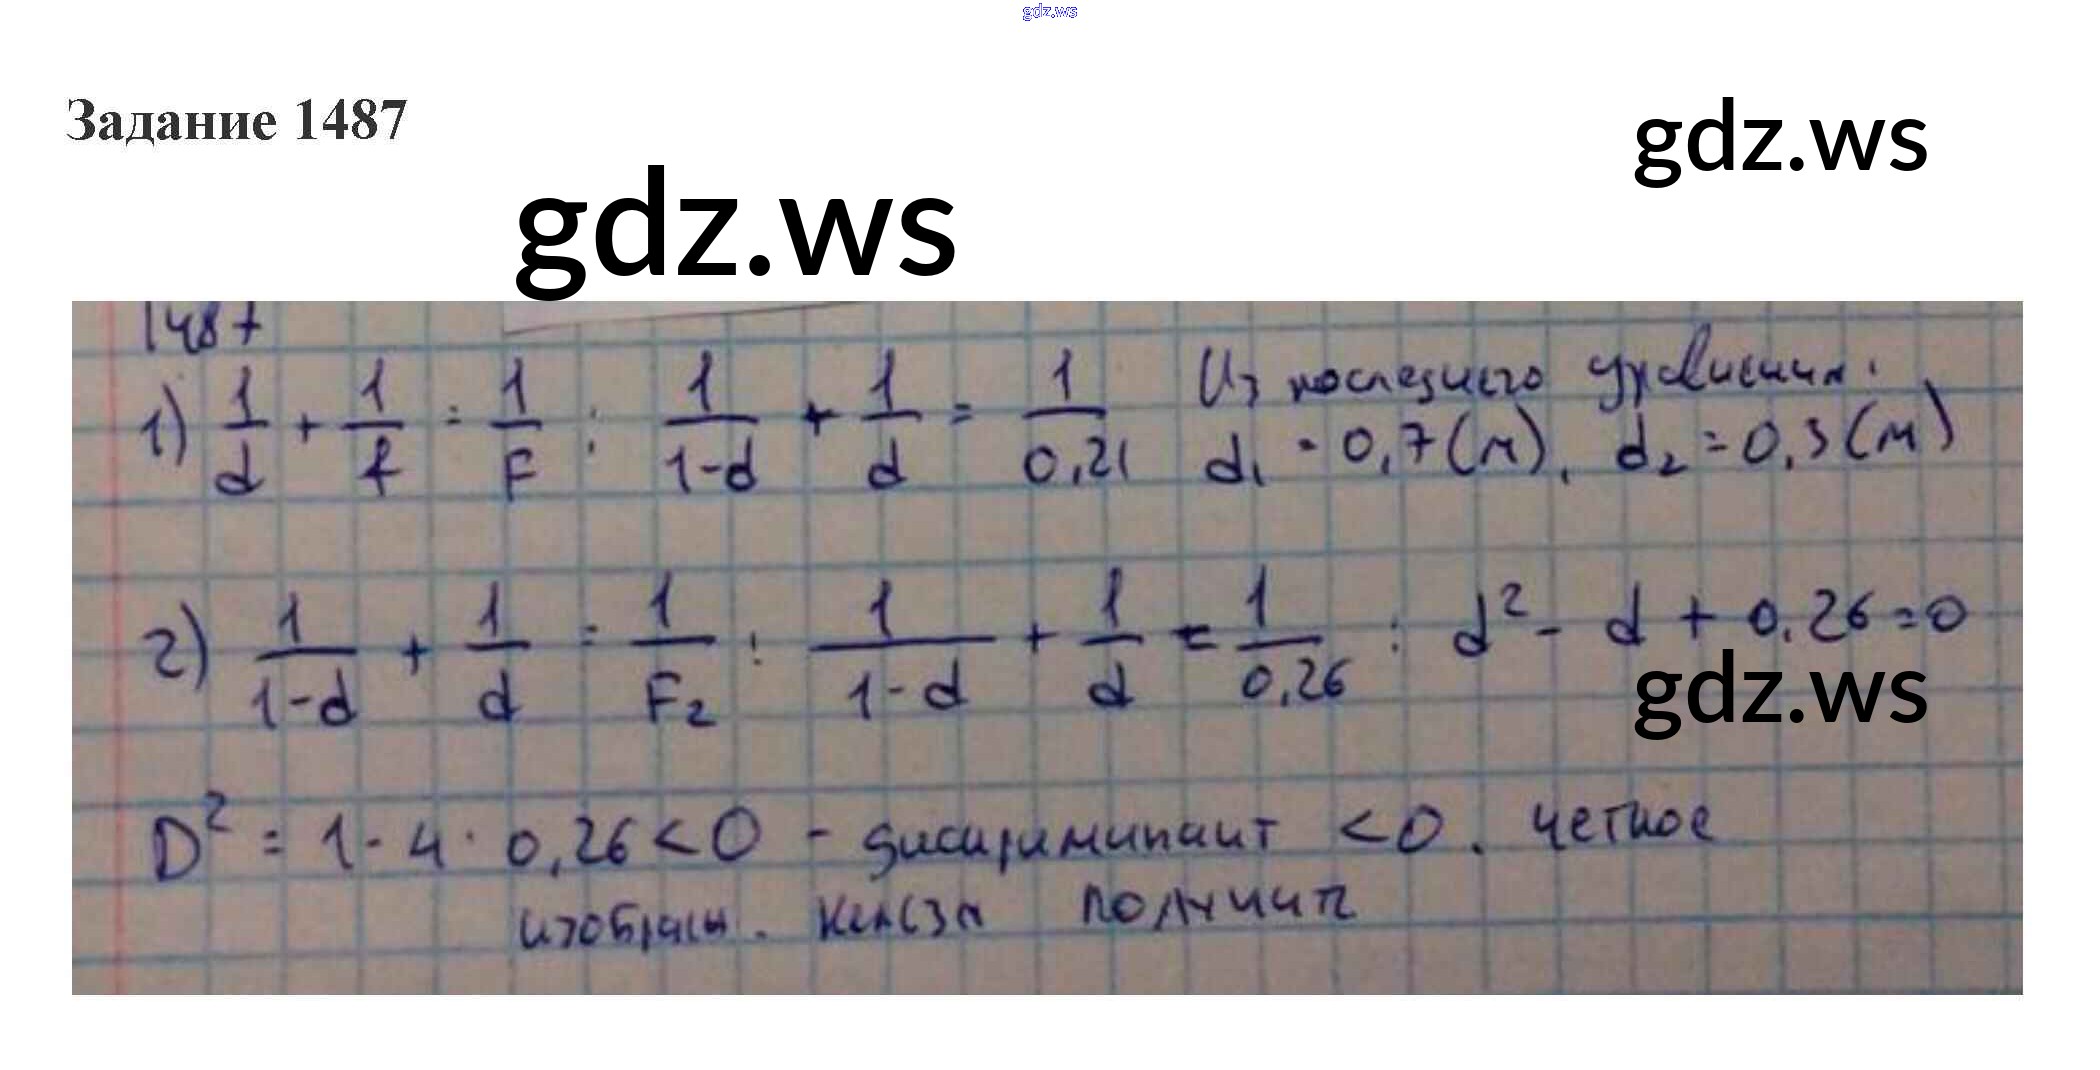 gdz.ws
Задание 1487
gdz.ws
gdz.ws
1487
1) 1/d + 1/f = 1/F ; 1/(1-d) + 1/d = 1/0,21 Из последнего уравнения:
d₁ = 0,7 (м), d₂ = 0,3 (м)
2) 1/(1-d) + 1/d = 1/F₂ ; 1/(1-d) + 1/d = 1/0,26 ; d² - d + 0,26 = 0
gdz.ws
D² = 1 - 4 · 0,26 < 0 - дискриминант < 0. четкое
изображ. нельзя получить